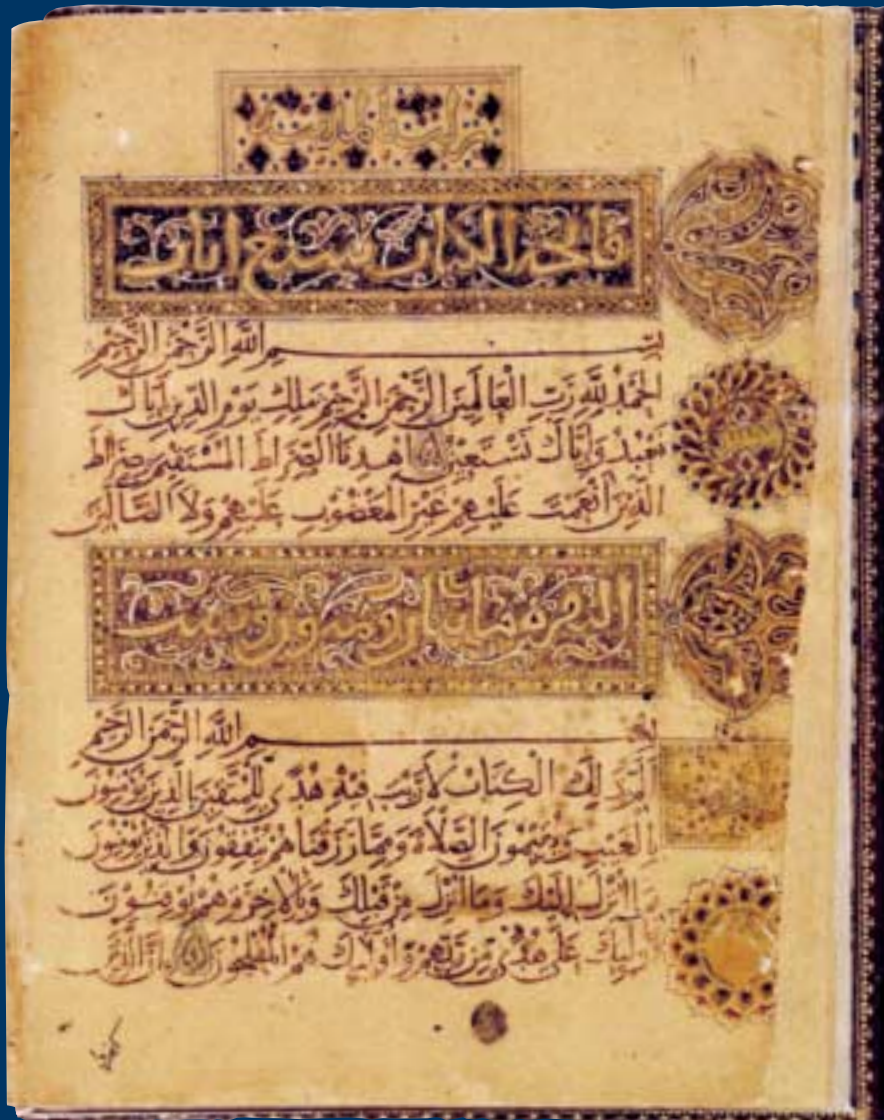 فاتحة الكتاب سبع آيات
بسم الله الرحمن الرحيم
الحمد لله رب العالمين الرحمن الرحيم ملك يوم الدين اياك
نعبد واياك نستعين اهدنا الصراط المستقيم صراط
الذين أنعمت عليهم غير المغضوب عليهم ولا الضالين
البقرة مائتان وست
بسم الله الرحمن الرحيم
الم ذلك الكتاب لا ريب فيه هدى للمتقين الذين يؤمنون
بالغيب ويقيمون الصلاة ومما رزقناهم ينفقون والذين يؤمنون
بما أنزل إليك وما أنزل من قبلك وبالآخرة هم يوقنون
أولئك على هدى من ربهم وأولئك هم المفلحون إن الذين